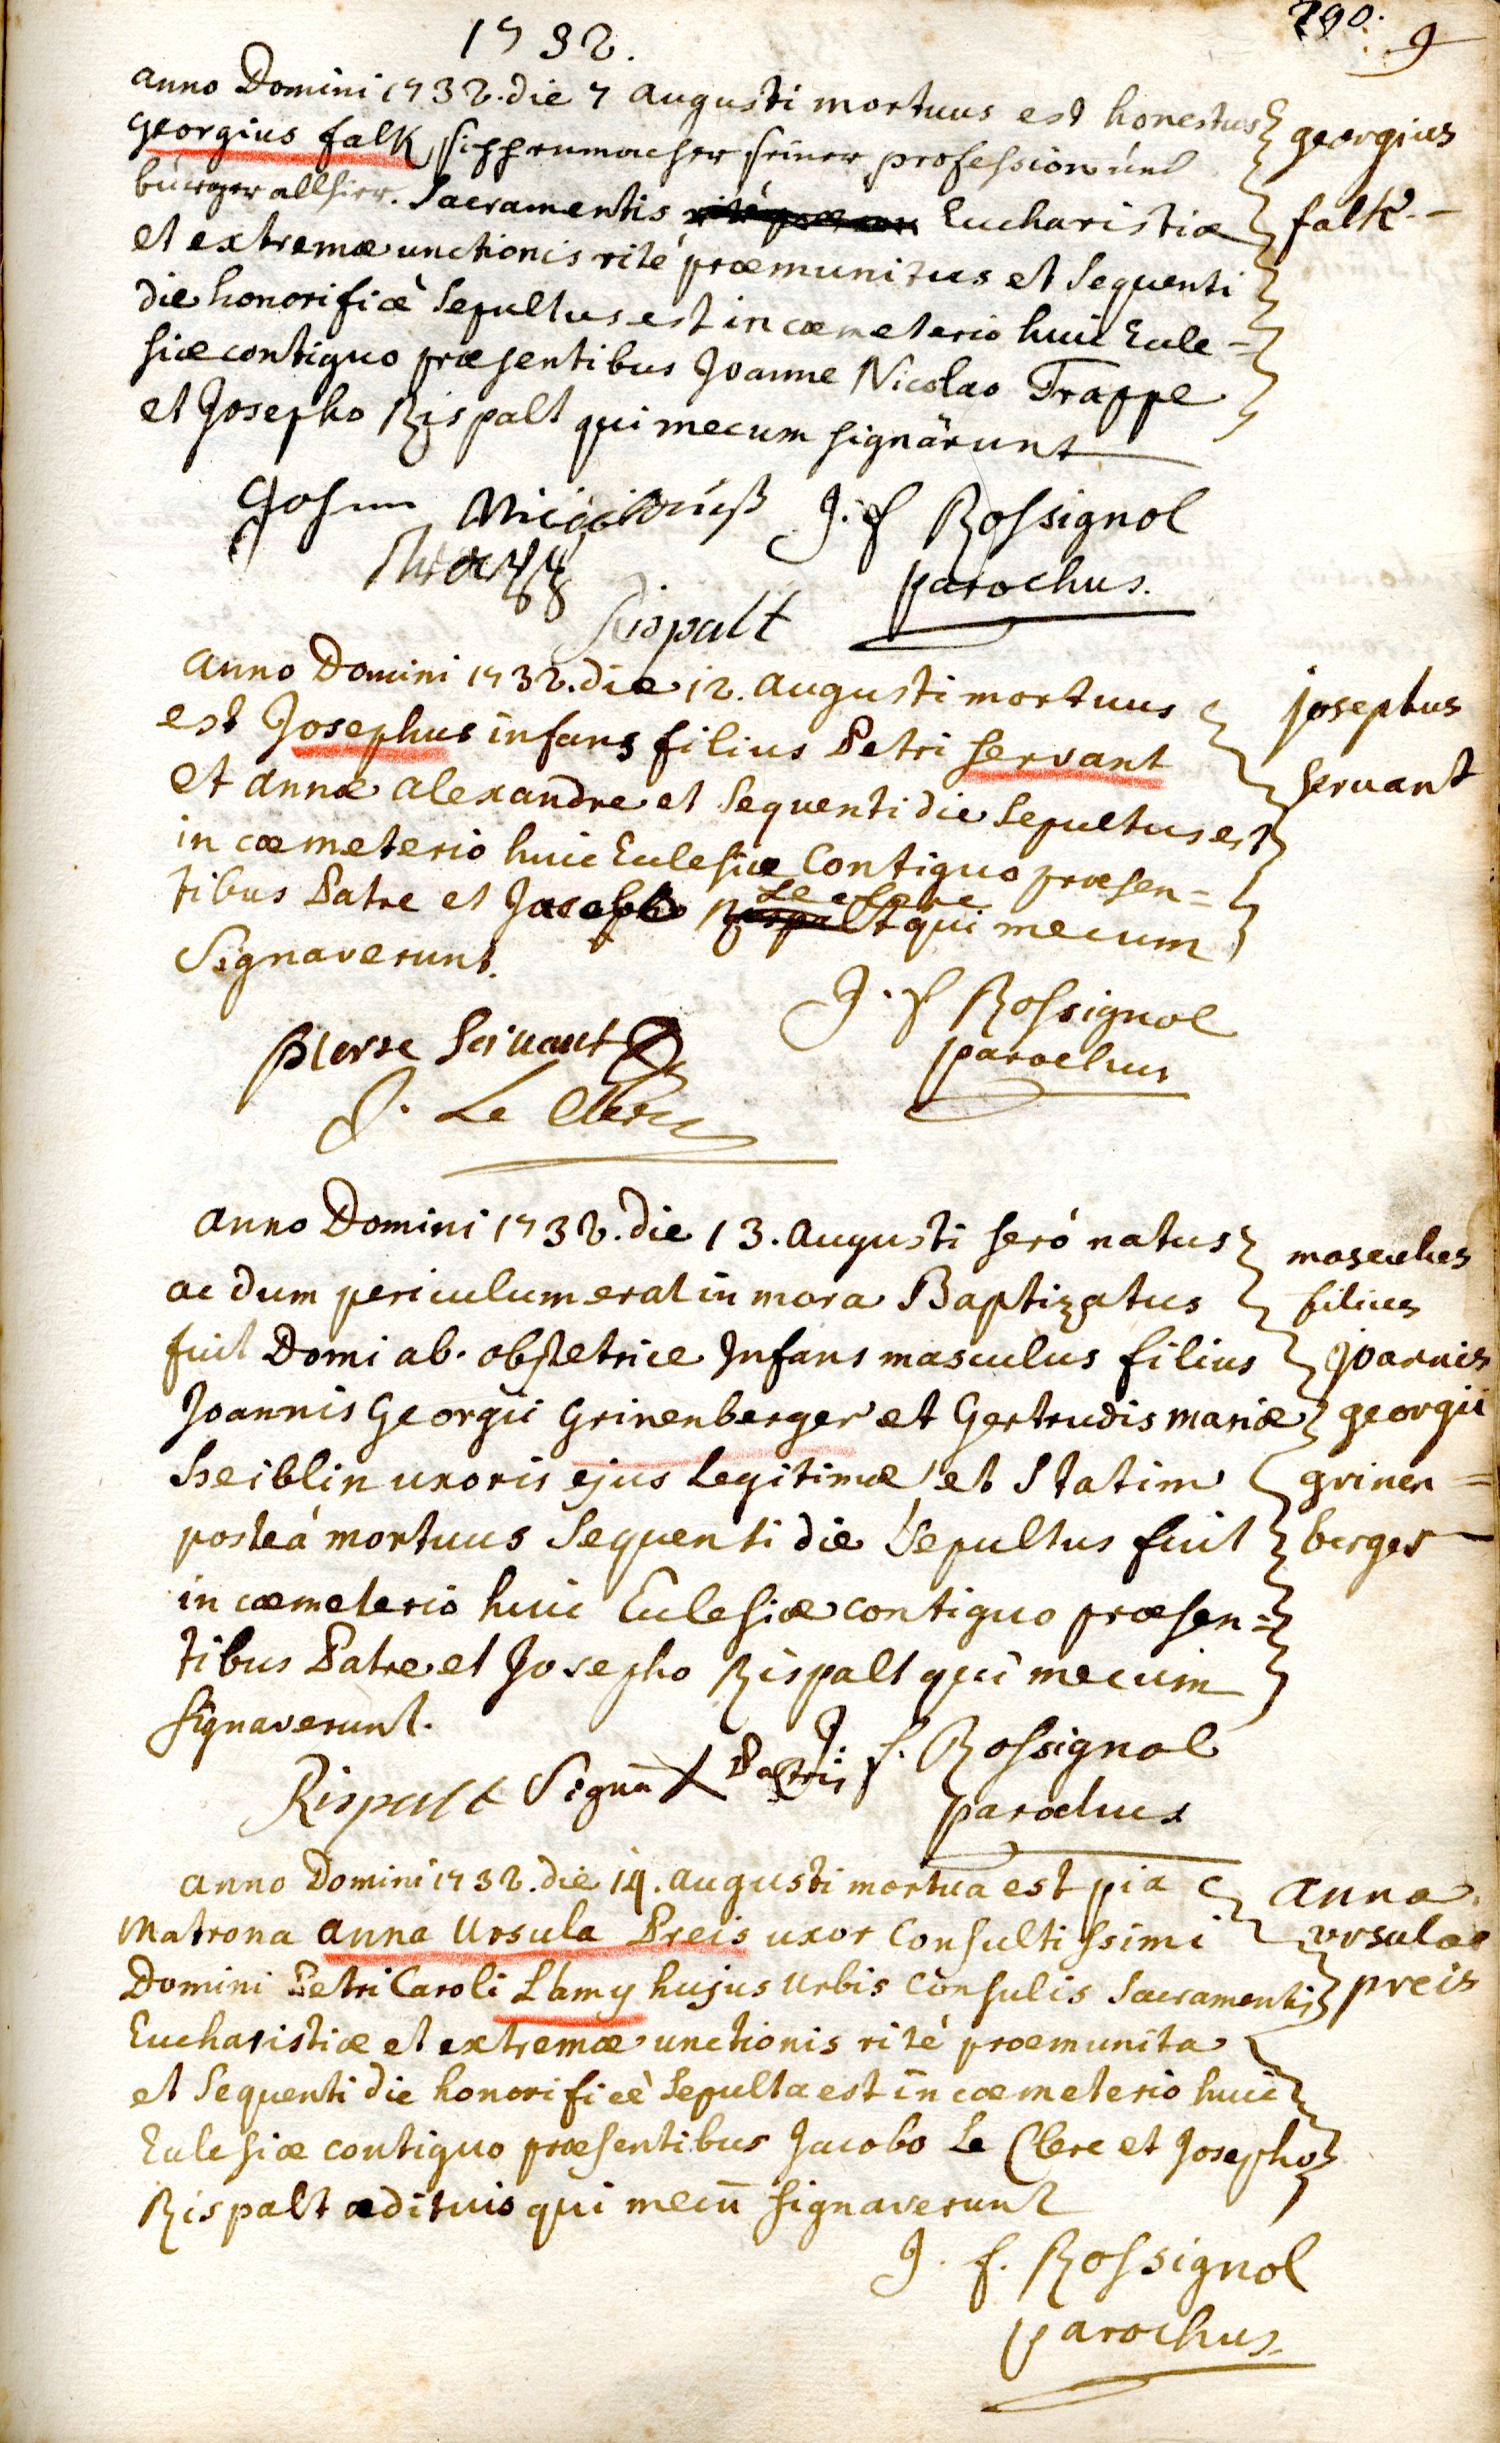 1732.
290. 9
anno Domini 1732. die 7 augusti mortuus est honestus
georgius falk, seiner profession und
burger allhier. Sacramentis Eucharistiæ
et extremæ unctionis rité præmunitus et sequenti
die honorificè sepultus est in cœmeterio huic Eccle-
siæ contiguo præsentibus Joanne Nicolao Trappe
et Josepho Rispalt qui mecum signârunt
georgius
falk
J. f Rossignol
parochus.
Rispalt
anno Domini 1732. die 12. augusti mortuus
est Josephus infans filius Petri servant
et annæ alexandre et sequenti die sepultus est
in cœmeterio huic Ecclesiæ contiguo præsen=
tibus Patre et Le Clerc qui mecum
signaverunt.
josephus
servant
J. f Rossignol
parochus
pierre Servant
J. Le Clerc
anno Domini 1732. die 13. augusti seró natus
ac dum periculum erat in mora Baptizatus
fuit Domi ab obstetrice Infans masculus filius
Joannis Georgii Grinenberger et Gertrudis mariæ
Sseiblin uxoris ejus legitimæ et statim
posteá mortuus sequenti die sepultus fuit
in cœmeterio huic Ecclesiæ contiguo præsen=
tibus Patre et Josepho Rispalt qui mecum
signaverunt.
masculus
filius
joannis
georgii
grinen=
berger
Rispalt Signū X Patris J. f. Rossignol
parochus
anno Domini 1732. die 14. augusti mortua est pia
Matrona anna Ursula Preis uxor Consultissimi
Domini Petri Caroli L'amy hujus urbis Consulis Sacramentis
Eucharistiæ et extremæ unctionis rité præmunita
et sequenti die honorificè sepulta est in cœmeterio huic
Ecclesiæ contiguo præsentibus Jacobo Le Clerc et Josepho
Rispalt ædituis qui mecū signaverunt
anna
ursulae
preis
J. f. Rossignol
parochus